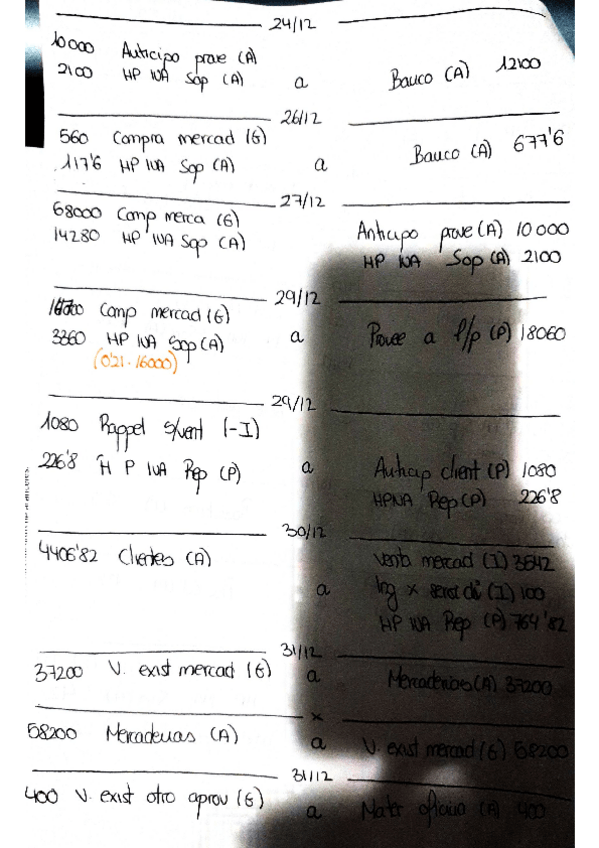 24/12
10000 Anticipo prove (A)
2100 HP IVA Sop (A) a Banco (A) 12100
26/12
560 Compra mercad (G)
117'6 HP IVA Sop (A) a Banco (A) 677'6
27/12
68000 Comp merca (G)
14280 HP IVA Sop (A)
Anticipo prove (A) 10 000
HP IVA Sop (A) 2100
29/12
Comp mercad (G)
3360 HP IVA Sop (A) a Provee a l/p (P) 18060
(0'21 · 16000)
29/12
1080 Rappel s/vent (-I)
226'8 H P IVA Rep (P) a Anticip client (P) 1080
HP IVA Rep (P) 226'8
30/12
4406'82 Clientes (A)
Venta mercad (I) 3542
a Ing x (I) 100
HP IVA Rep (P) 764'82
31/12
37200 V. exist mercad (G) a Mercaderias (A) 37200
x
58200 Mercaderias (A) a V. exist mercad (G) 58200
31/12
400 V. exist otro aprov (G) a Mater oficina (A) 400